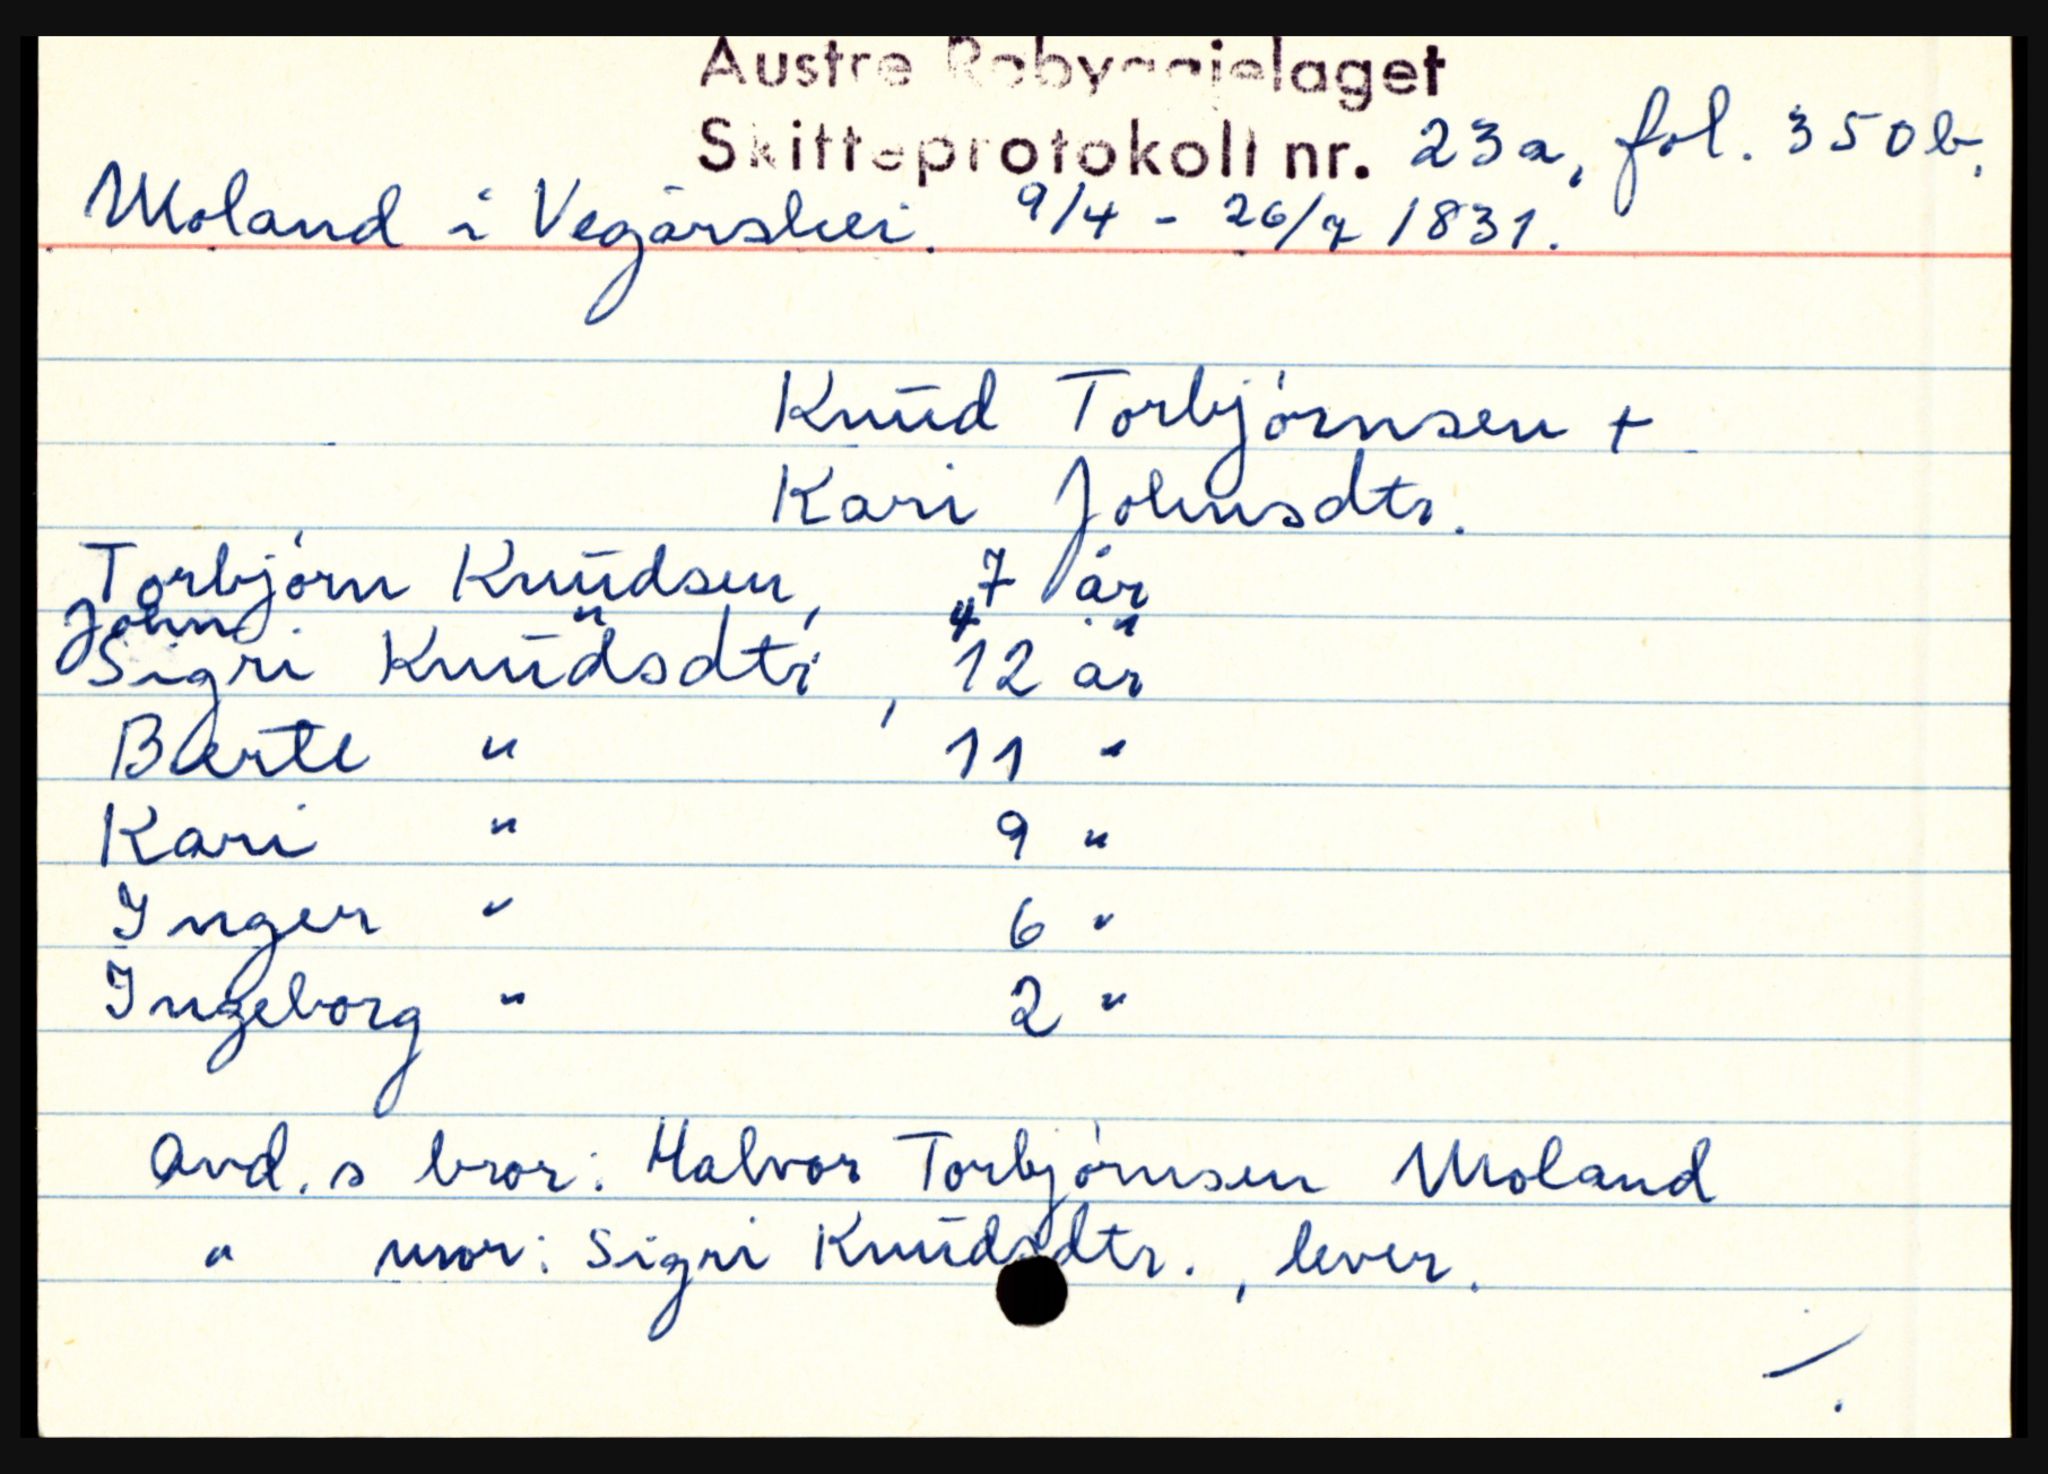 Austre Robyggjelaget
Skifteprotokoll nr. 23a, fol. 350b.
Moland i Vegårshei. 9/4 - 26/7 1831.
Knud Torbjørnsen +
Kari Johnsdtr.
Torbjørn Knudsen, 7 år
John " 4 "
Sigri Knudsdtr, 12 år
Berte " 11 "
Kari " 9 "
Inger " 6 "
Ingeborg " 2 "
Avd. s bror: Halvor Torbjørnsen Moland
" mor: Sigri Knudsdtr., lever.